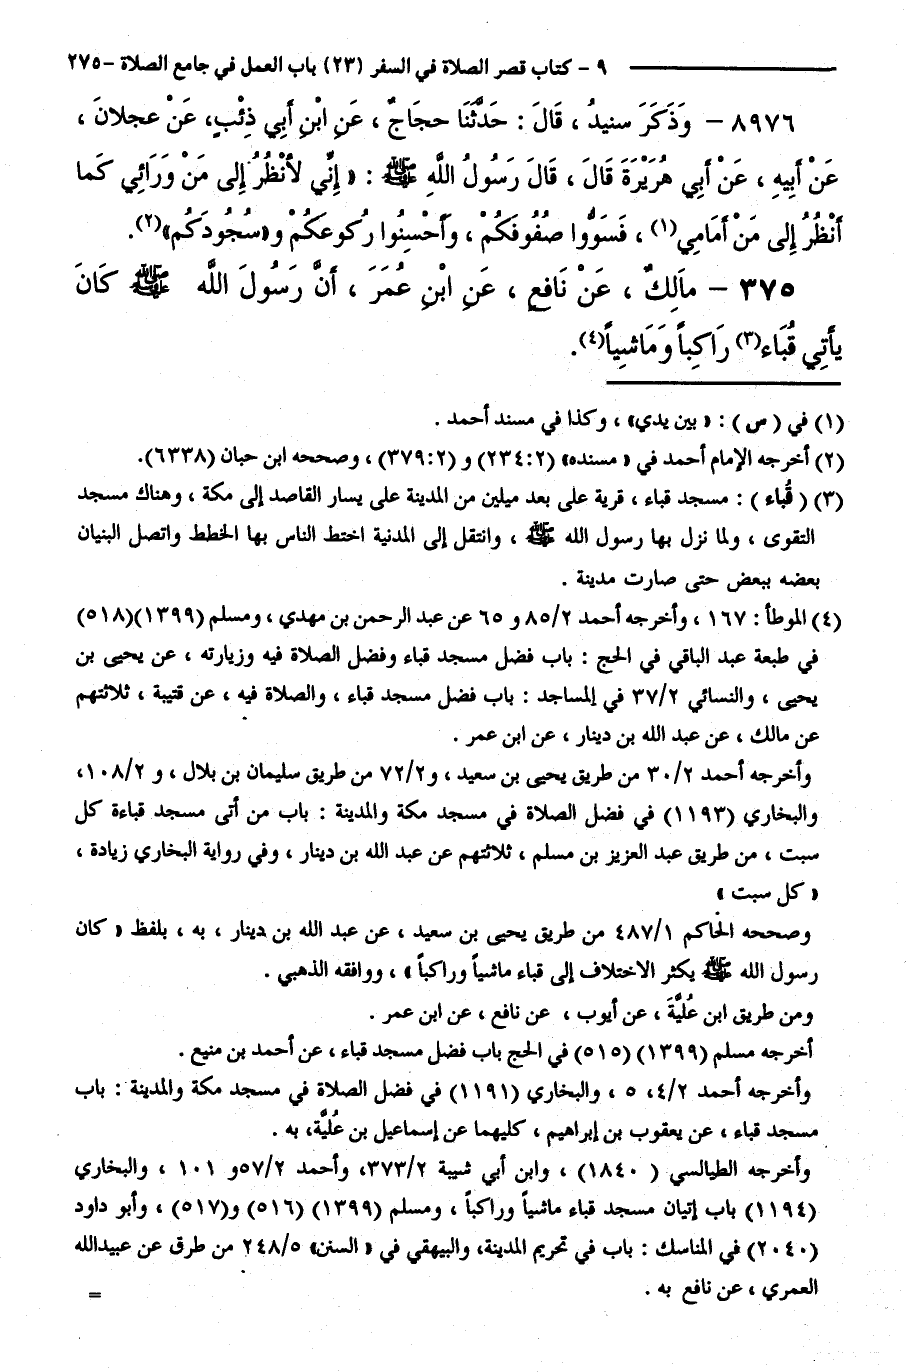 ٩ - كتاب قصر الصلاة في السفر (٢٣) باب العمل في جامع الصلاة - ٢٧٥
٨٩٧٦ - وَذَكَرَ سنيدُ ، قَالَ : حَدَّثَنَا حجاجٌ ، عَنِ ابْنِ أبي ذِئْبٍ، عَنْ عجلانَ ،
عَنْ أَبِيهِ ، عَنْ أَبِي هُرَيْرَةَ قَالَ ، قَالَ رَسُولُ اللَّهِ ﷺ : « إِنِّي لأنْظُرُ إلى مَنْ وَرَائِي كَما
أَنْظُرُ إلى مَنْ أمَامِي(١) ، فَسَوُّوا صُفُوفَكُمْ ، وَأَحْسِنُوا رُكُوعَكُمْ و«سُجُودَكُم»(٢).
٣٧٥ - مَالِكٌ ، عَنْ نَافعٍ ، عَنِ ابْنِ عُمَرَ ، أَنَّ رَسُولَ اللَّه ﷺ كَانَ
يأتِي قُبَاء(٣) رَاكِباً وَمَاشياً(٤).
(١) في ( س ) : « بين يدي» ، وكذا في مسند أحمد .
(٢) أخرجه الإمام أحمد في « مسنده» (٢٣٤:٢) و (٣٧٩:٢) ، وصححه ابن حبان (٦٣٣٨).
(٣) ( قُباء ) : مسجد قباء ، قرية على بعد ميلين من المدينة على يسار القاصد إلى مكة ، وهناك مسجد
التقوى ، ولما نزل بها رسول الله ﷺ ، وانتقل إلى المدنية اختط الناس بها الخطط واتصل البنيان
بعضه ببعض حتى صارت مدينة .
(٤) الموطأ : ١٦٧ ، وأخرجه أحمد ٨٥/٢ و ٦٥ عن عبد الرحمن بن مهدي ، ومسلم (١٣٩٩)(٥١٨)
في طبعة عبد الباقي في الحج : باب فضل مسجد قباء وفضل الصلاة فيه وزيارته ، عن يحيى بن
يحيى ، والنسائي ٣٧/٢ في المساجد : باب فضل مسجد قباء ، والصلاة فيه ، عن قتيبة ، ثلاثتهم
عن مالك ، عن عبد الله بن دينار ، عن ابن عمر .
وأخرجه أحمد ٣٠/٢ من طريق يحيى بن سعيد ، و٧٢/٢ من طريق سليمان بن بلال ، و ١٠٨/٢،
والبخاري (١١٩٣) في فضل الصلاة في مسجد مكة والمدينة : باب من أتى مسجد قباءة كل
سبت ، من طريق عبد العزيز بن مسلم ، ثلاثتهم عن عبد الله بن دينار ، وفي رواية البخاري زيادة ،
« كل سبت »
وصححه الحاكم ٤٨٧/١ من طريق يحيى بن سعيد ، عن عبد الله بن دينار ، به ، بلفظ « كان
رسول الله ﷺ يكثر الاختلاف إلى قباء ماشياً وراكباً » ، ووافقه الذهبي .
ومن طريق ابن عُليَّةَ ، عن أيوب ، عن نافع ، عن ابن عمر .
أخرجه مسلم (١٣٩٩) (٥١٥) في الحج باب فضل مسجد قباء ، عن أحمد بن منيع .
وأخرجه أحمد ٤/٢، ٥ ، والبخاري (١١٩١) في فضل الصلاة في مسجد مكة والمدينة : باب
مسجد قباء ، عن يعقوب بن إبراهيم ، كليهما عن إسماعيل بن عُليَّة، به .
وأخرجه الطيالسي ( ١٨٤٠) ، وابن أبي شيبة ٣٧٣/٢، وأحمد ٥٧/٢و ١٠١ ، والبخاري
(١١٩٤) باب إتيان مسجد قباء ماشياً وراكباً ، ومسلم (١٣٩٩) (٥١٦) و(٥١٧) ، وأبو داود
(٢٠٤٠) في المناسك : باب في تحريم المدينة، والبيهقي في « السنن» ٢٤٨/٥ من طرق عن عبيدالله
العمري ، عن نافع به .
=